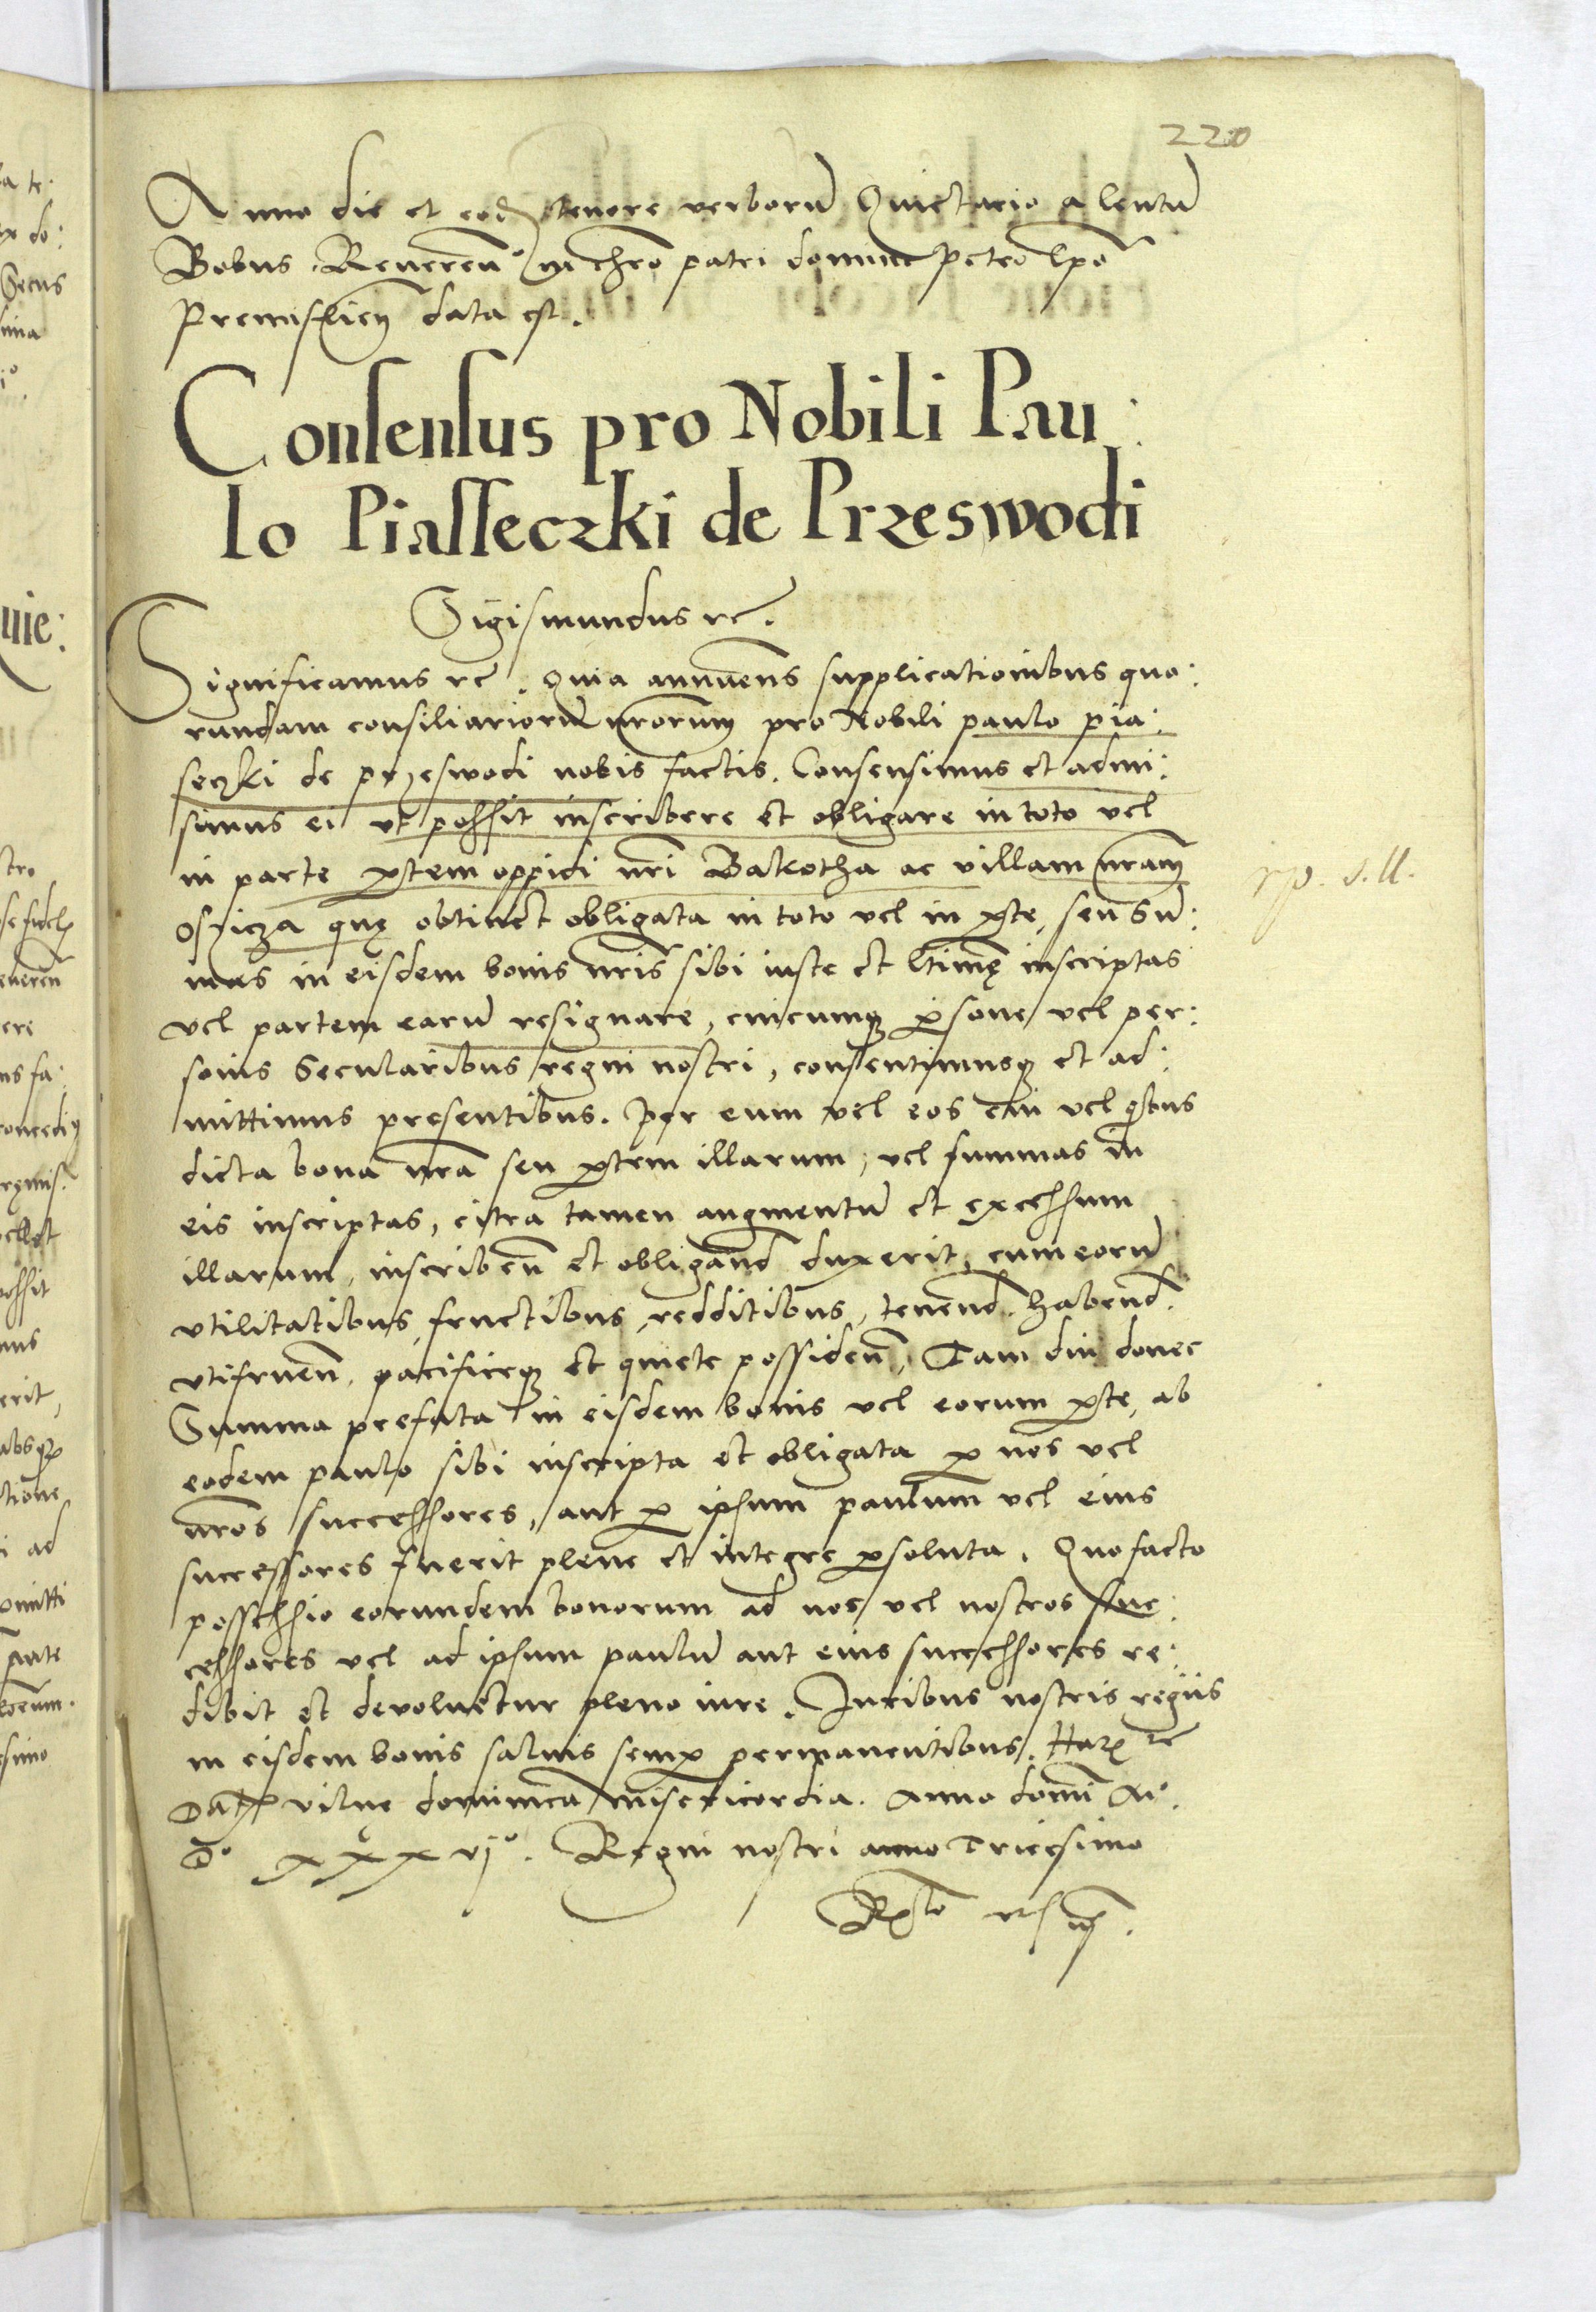 220
Anno die et eod tenore verborū Quictacio a lentū
Bobus Reuerenᵒ in chro patri domino Petro Epo
Premislien data est.
Consensus pro Nobili Pau:
lo Piasseczki de Przeswodi
Sigismundus rc.
Significamus rc. Quia annuens supplicationibus quo:
rundam consiliariorū nrorum pro Nobili paulo pia:
seczki de przeswodi nobis factis. Consensimus et admi:
simus ei vt possit inscribere et obligare in toto vel
in parte ptem oppidi nri Bakotha ac villam nram
Osricza quę obtinet obligata in toto vel in pte, seu Sū:
mas in eisdem bonis nris sibi iuste et ltimę inscriptas
vel partem earū resignare, cuicumq persone vel per:
sonis Secularibus regni nostri, consentimusq et ad:
mittimus presentibus. Per eum vel eos cui vel qbus
dicta bona nra seu ptem illarum, vel summas in
eis inscriptas, citra tamen augmentū et excessum
illarum, inscribeñ et obligand duxerit, cum eorū
vtilitatibus, fructibus, redditibus, tenend. habend.
vtifrueñ. pacificeq et quiete possideñ, Tam diu donec
Summa prefata in eisdem bonis vel eorum pte, ab
eodem paulo sibi inscripta et obligata p nos vel
nros successores, aut p ipsum paulum vel eius
successores fuerit plene et integre psoluta. Quo facto
possessio eorundem bonorum ad nos vel nostros suc:
cessores vel ad ipsum paulū aut eius successores re:
dibit et devoluetur pleno iure. Iuribus nostris regiis
in eisdem bonis saluis semp permanentibus. Har rc
Dat vilnę dominica misericordia. Anno domi Mᵒ.
Dᵒ xxxvjᵒ. Regni nostri anno Tricesimo
Rᵗᵒ vt sup.